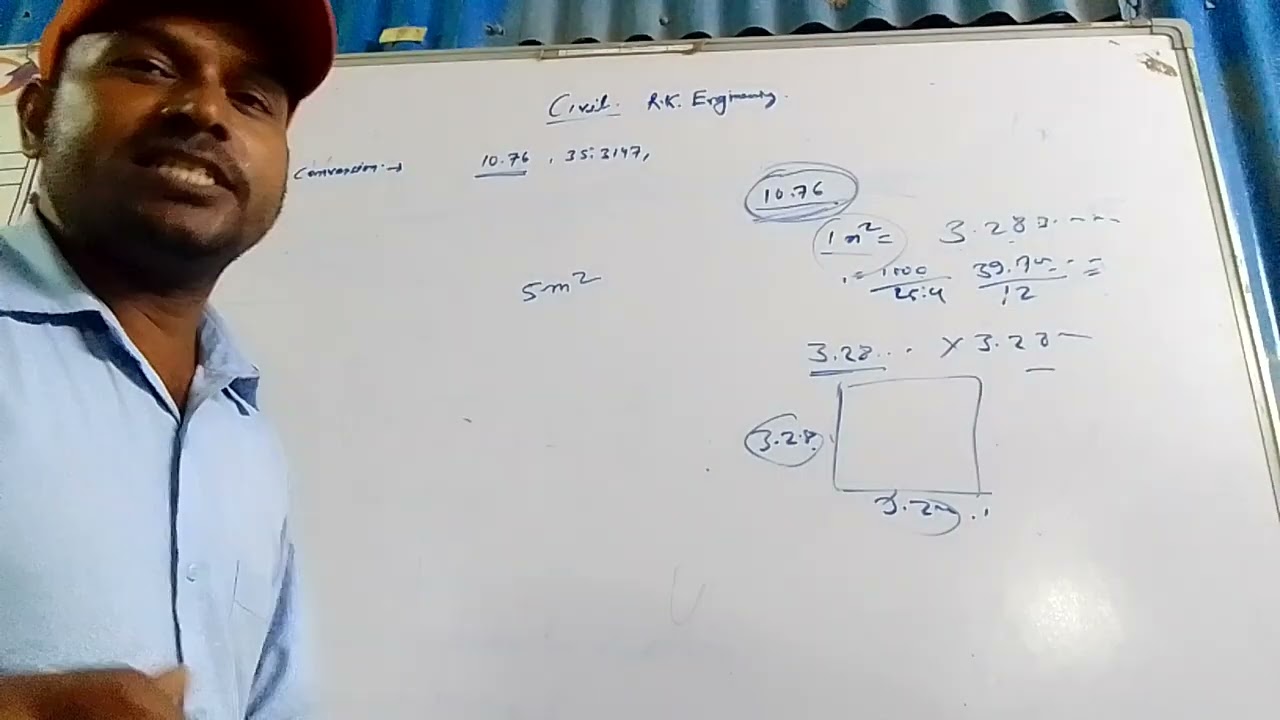 Civil. R.K. Enginerng.
Conversion → 10.76, 35.3147,
10.76
1 m² = 3.280
= 1000/25.4 39.37/12 =
5m²
3.28... × 3.28
3.28
3.28